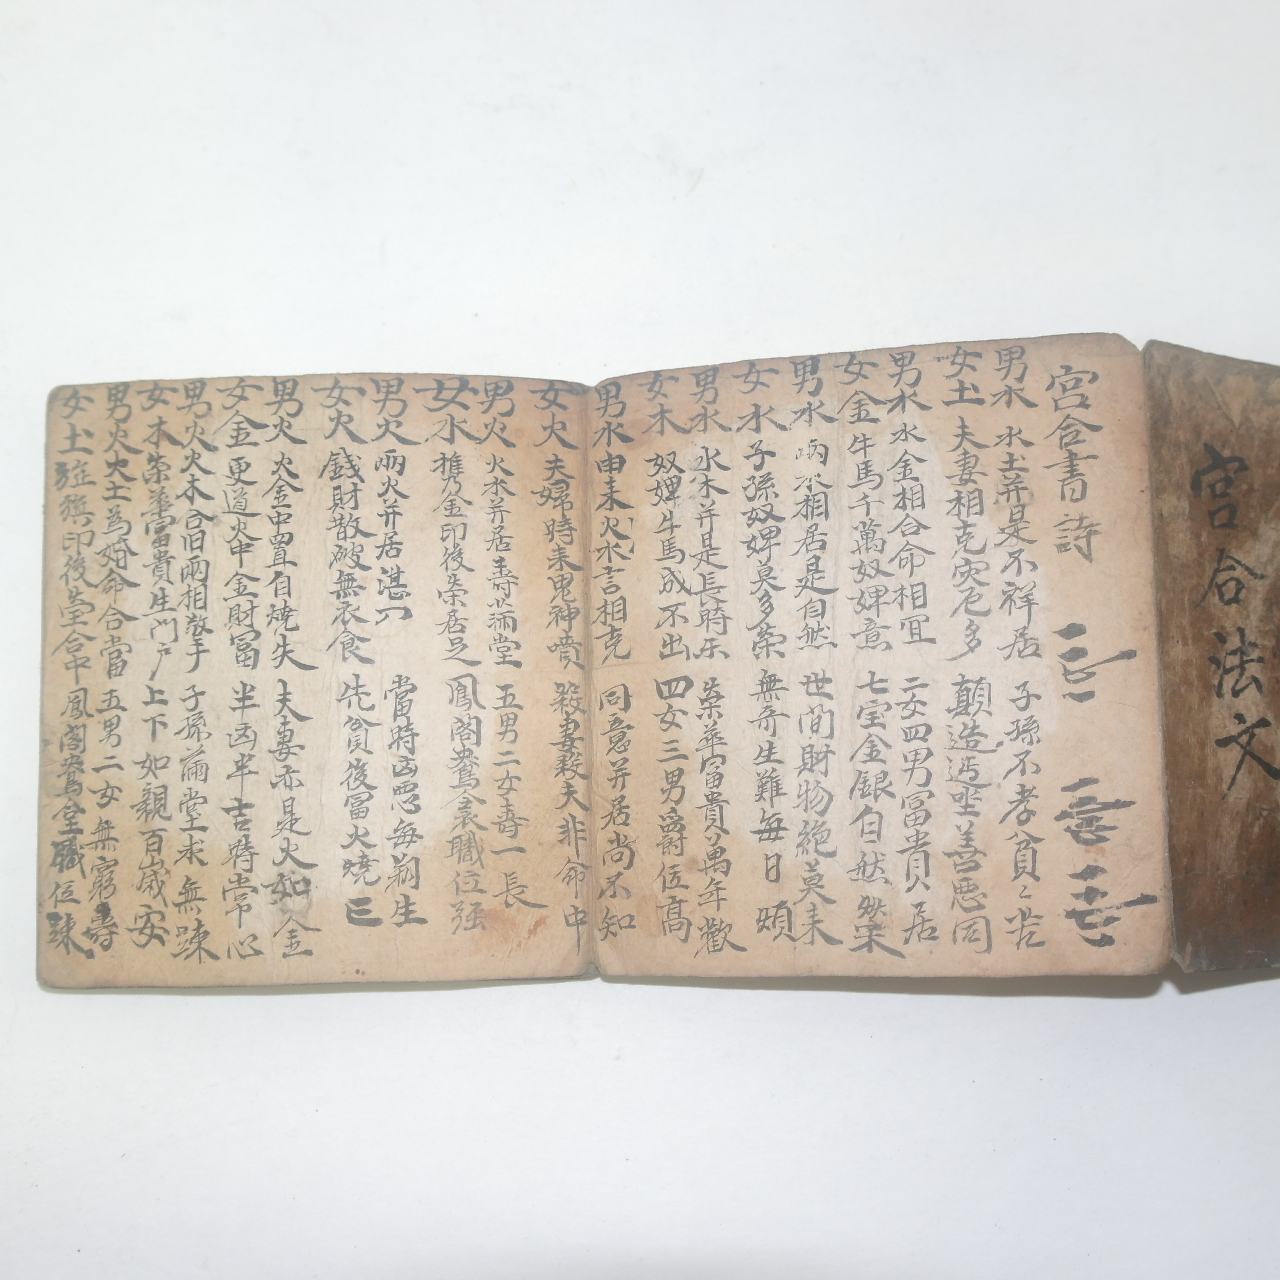 宮合法文
宮合書詩
男水 水土并是不祥居 子孫不孝貧〻苦
女土 夫妻相克灾厄多 顛造 坐善惡同
男水 水金相合命相冝 二女四男冨貴居
女金 牛馬千萬奴婢意 七宝金銀自然
男水 两水相居是自然 世间財物絶莫来
女水 子孫奴婢莫多荣 無奇生難每日煩
男水 水木并是長時乐 荣華富貴萬年歡
女木 奴婢牛馬成不出 四女三男爵位高
男水 由来火水言相克 同意并居尚不知
女火 夫婦時来鬼神嘖 殺妻殺夫非命中
男火 火水并居壽滿堂 五男二女壽一長
女水 携金印後荣居足 鳳阁鴦衾職位强
男火 两火并居湛 當時凶惡每 生
女火 錢財散破無衣食 先貧後冨火燒已
男火 火金中置自燒失 夫妻亦是火如金
女金 更道火中金財冨 半凶半吉時常心
男火 火木合旧两相敬手 子孫滿堂求無疎
女木 荣華富貴生門户 上下如親百歲安
男火 火土為婚命合當 五男二女無窮壽
女土 旌旗印後堂合中 鳳阁鴦堂職位踈